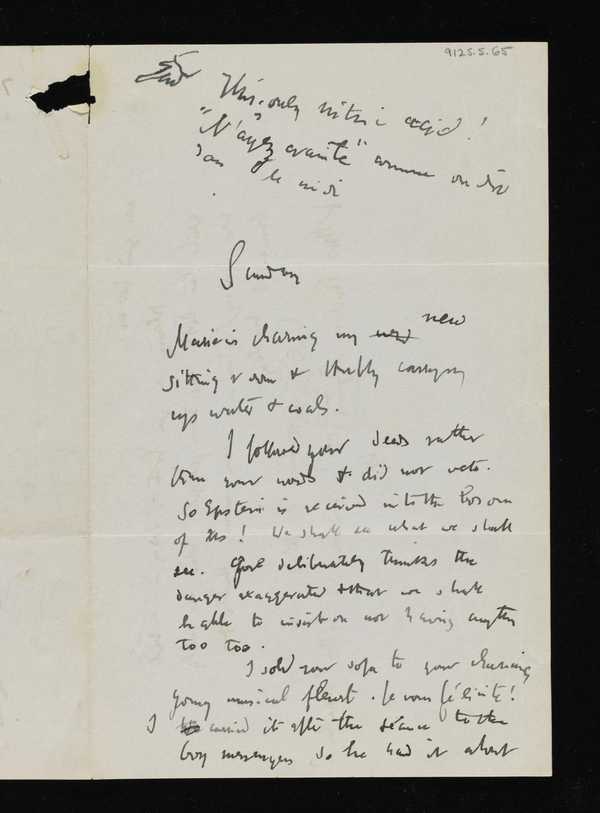 9125.5.65
This only nitric acid!
"N'ayez crainte" comme on dit
dans le midi
Sunday
Marie is cleaning my new
sitting room & thuftly carrying
up water & coals.
I followed your deeds rather
than your words & did not vote.
So Epstein is received into the bosom
of us! We shall see what we shall
see. Gore deliberately thinks the
danger exaggerated & that we shall
be able to insist on not having anything
too too.
I sold your sofa to your charming
young musical fleurt. Je vous félicite!
I carried it after the séance to the
boy messengers so he had it about